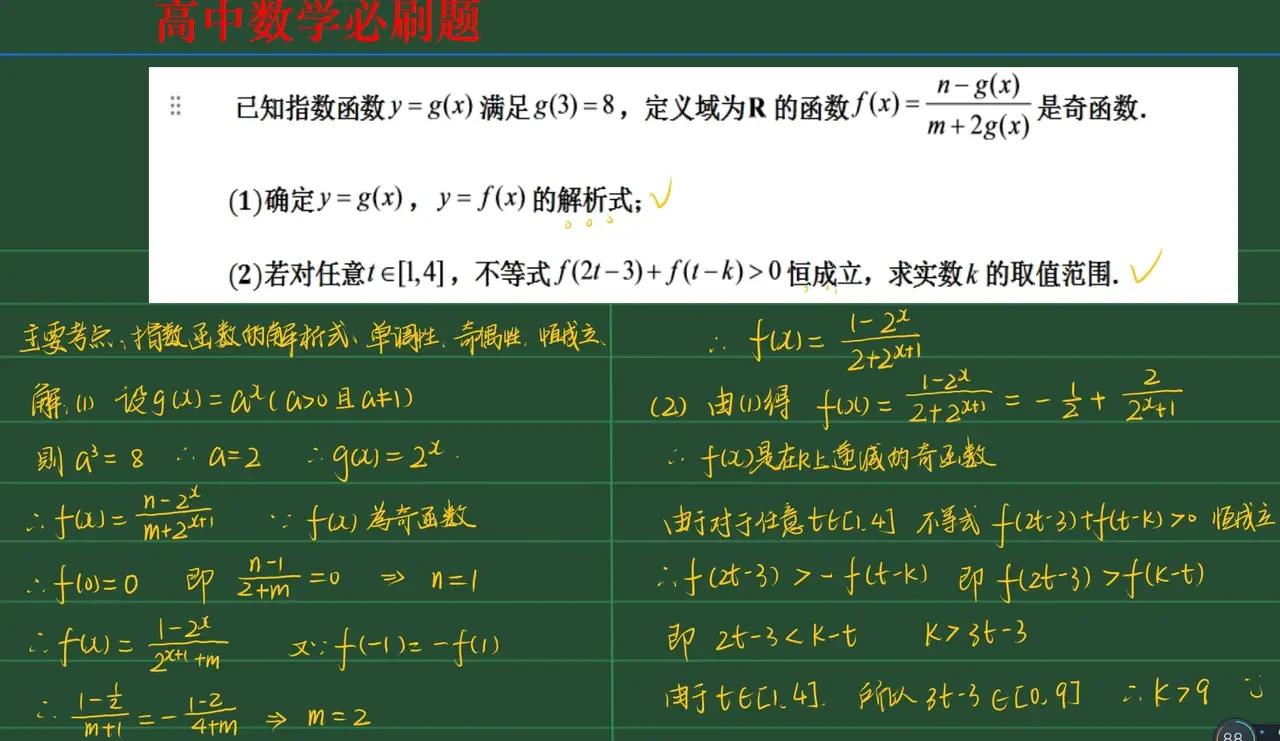 高中数学必刷题
已知指数函数y=g(x)满足g(3)=8，定义域为R的函数f(x)=\frac{n-g(x)}{m+2g(x)}是奇函数.
(1)确定y=g(x)，y=f(x)的解析式;
(2)若对任意t∈[1,4]，不等式f(2t-3)+f(t-k)>0恒成立，求实数k的取值范围.
主要考点:指数函数的解析式、单调性、奇偶性、恒成立、
解:(1) 设g(x)=a^x(a>0且a≠1)
则 a^3=8 ∴a=2 ∴g(x)=2^x.
∴f(x)=\frac{n-2^x}{m+2^{x+1}} ∵f(x)为奇函数
∴f(0)=0 即 \frac{n-1}{2+m}=0 ⇒ n=1
∴f(x)=\frac{1-2^x}{2^{x+1}+m} 又∵f(-1)=-f(1)
∴\frac{1-\frac{1}{2}}{m+1}=-\frac{1-2}{4+m} ⇒ m=2
∴f(x)=\frac{1-2^x}{2+2^{x+1}}
(2) 由(1)得 f(x)=\frac{1-2^x}{2+2^{x+1}}=-\frac{1}{2}+\frac{2}{2^x+1}
∴f(x)是在R上递减的奇函数
由于对于任意t∈[1,4] 不等式f(2t-3)+f(t-k)>0 恒成立
∴f(2t-3)>-f(t-k) 即 f(2t-3)>f(k-t)
即 2t-3<k-t k>3t-3
由于t∈[1,4]. 所以3t-3∈[0,9] ∴k>9
88